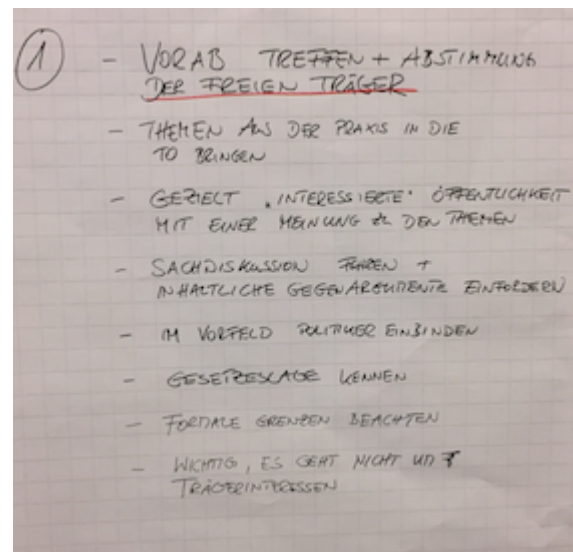 1 - VORAB TREFFEN + ABSTIMMUNG
DER FREIEN TRÄGER
- THEMEN AUS DER PRAXIS IN DIE
TO BRINGEN
- GEZIELT "INTERESSIERTE" ÖFFENTLICHKEIT
MIT EINER MEINUNG ZU DEN THEMEN
- SACHDISKUSSION FÜHREN +
INHALTLICHE GEGENARGUMENTE EINFORDERN
- IM VORFELD POLITIKER EINBINDEN
- GESETZESLAGE KENNEN
- FORMALE GRENZEN BEACHTEN
- WICHTIG, ES GEHT NICHT UM
TRÄGERINTERESSEN